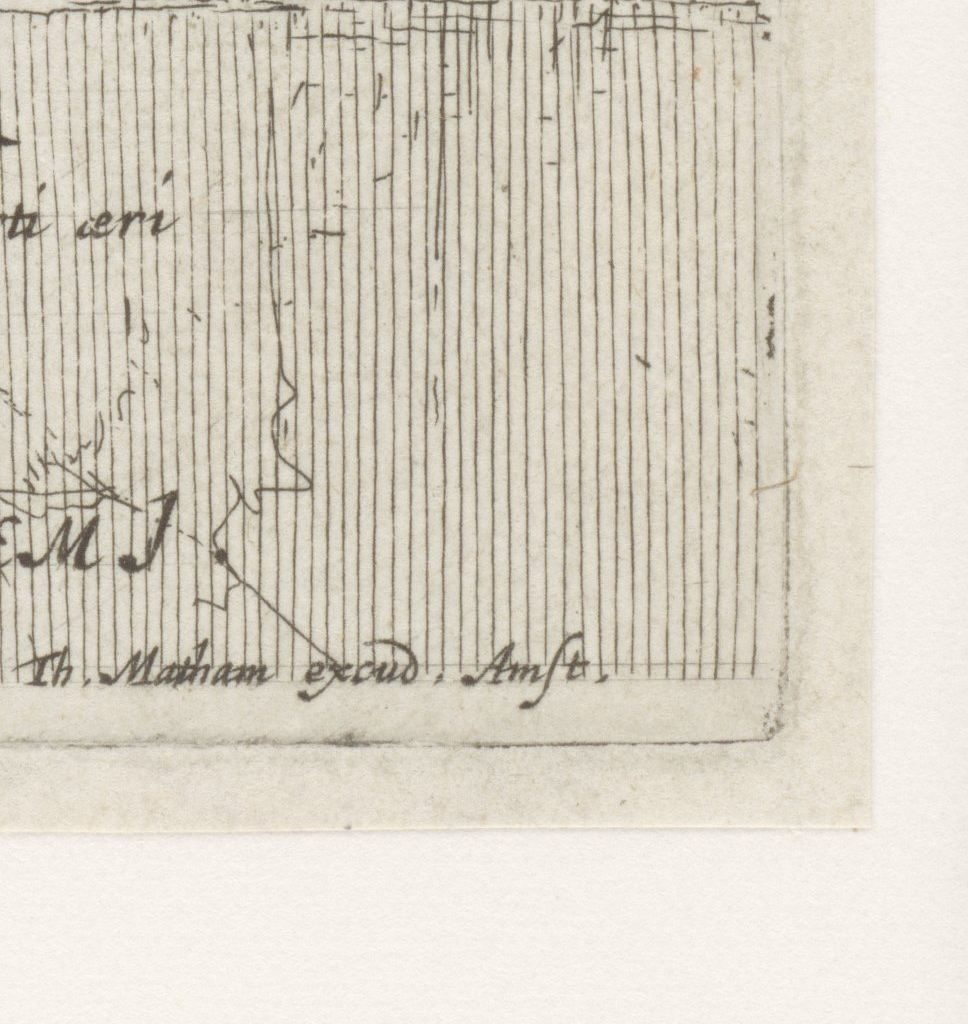 rti æri
EMJ
Th. Matham excud. Amſt.